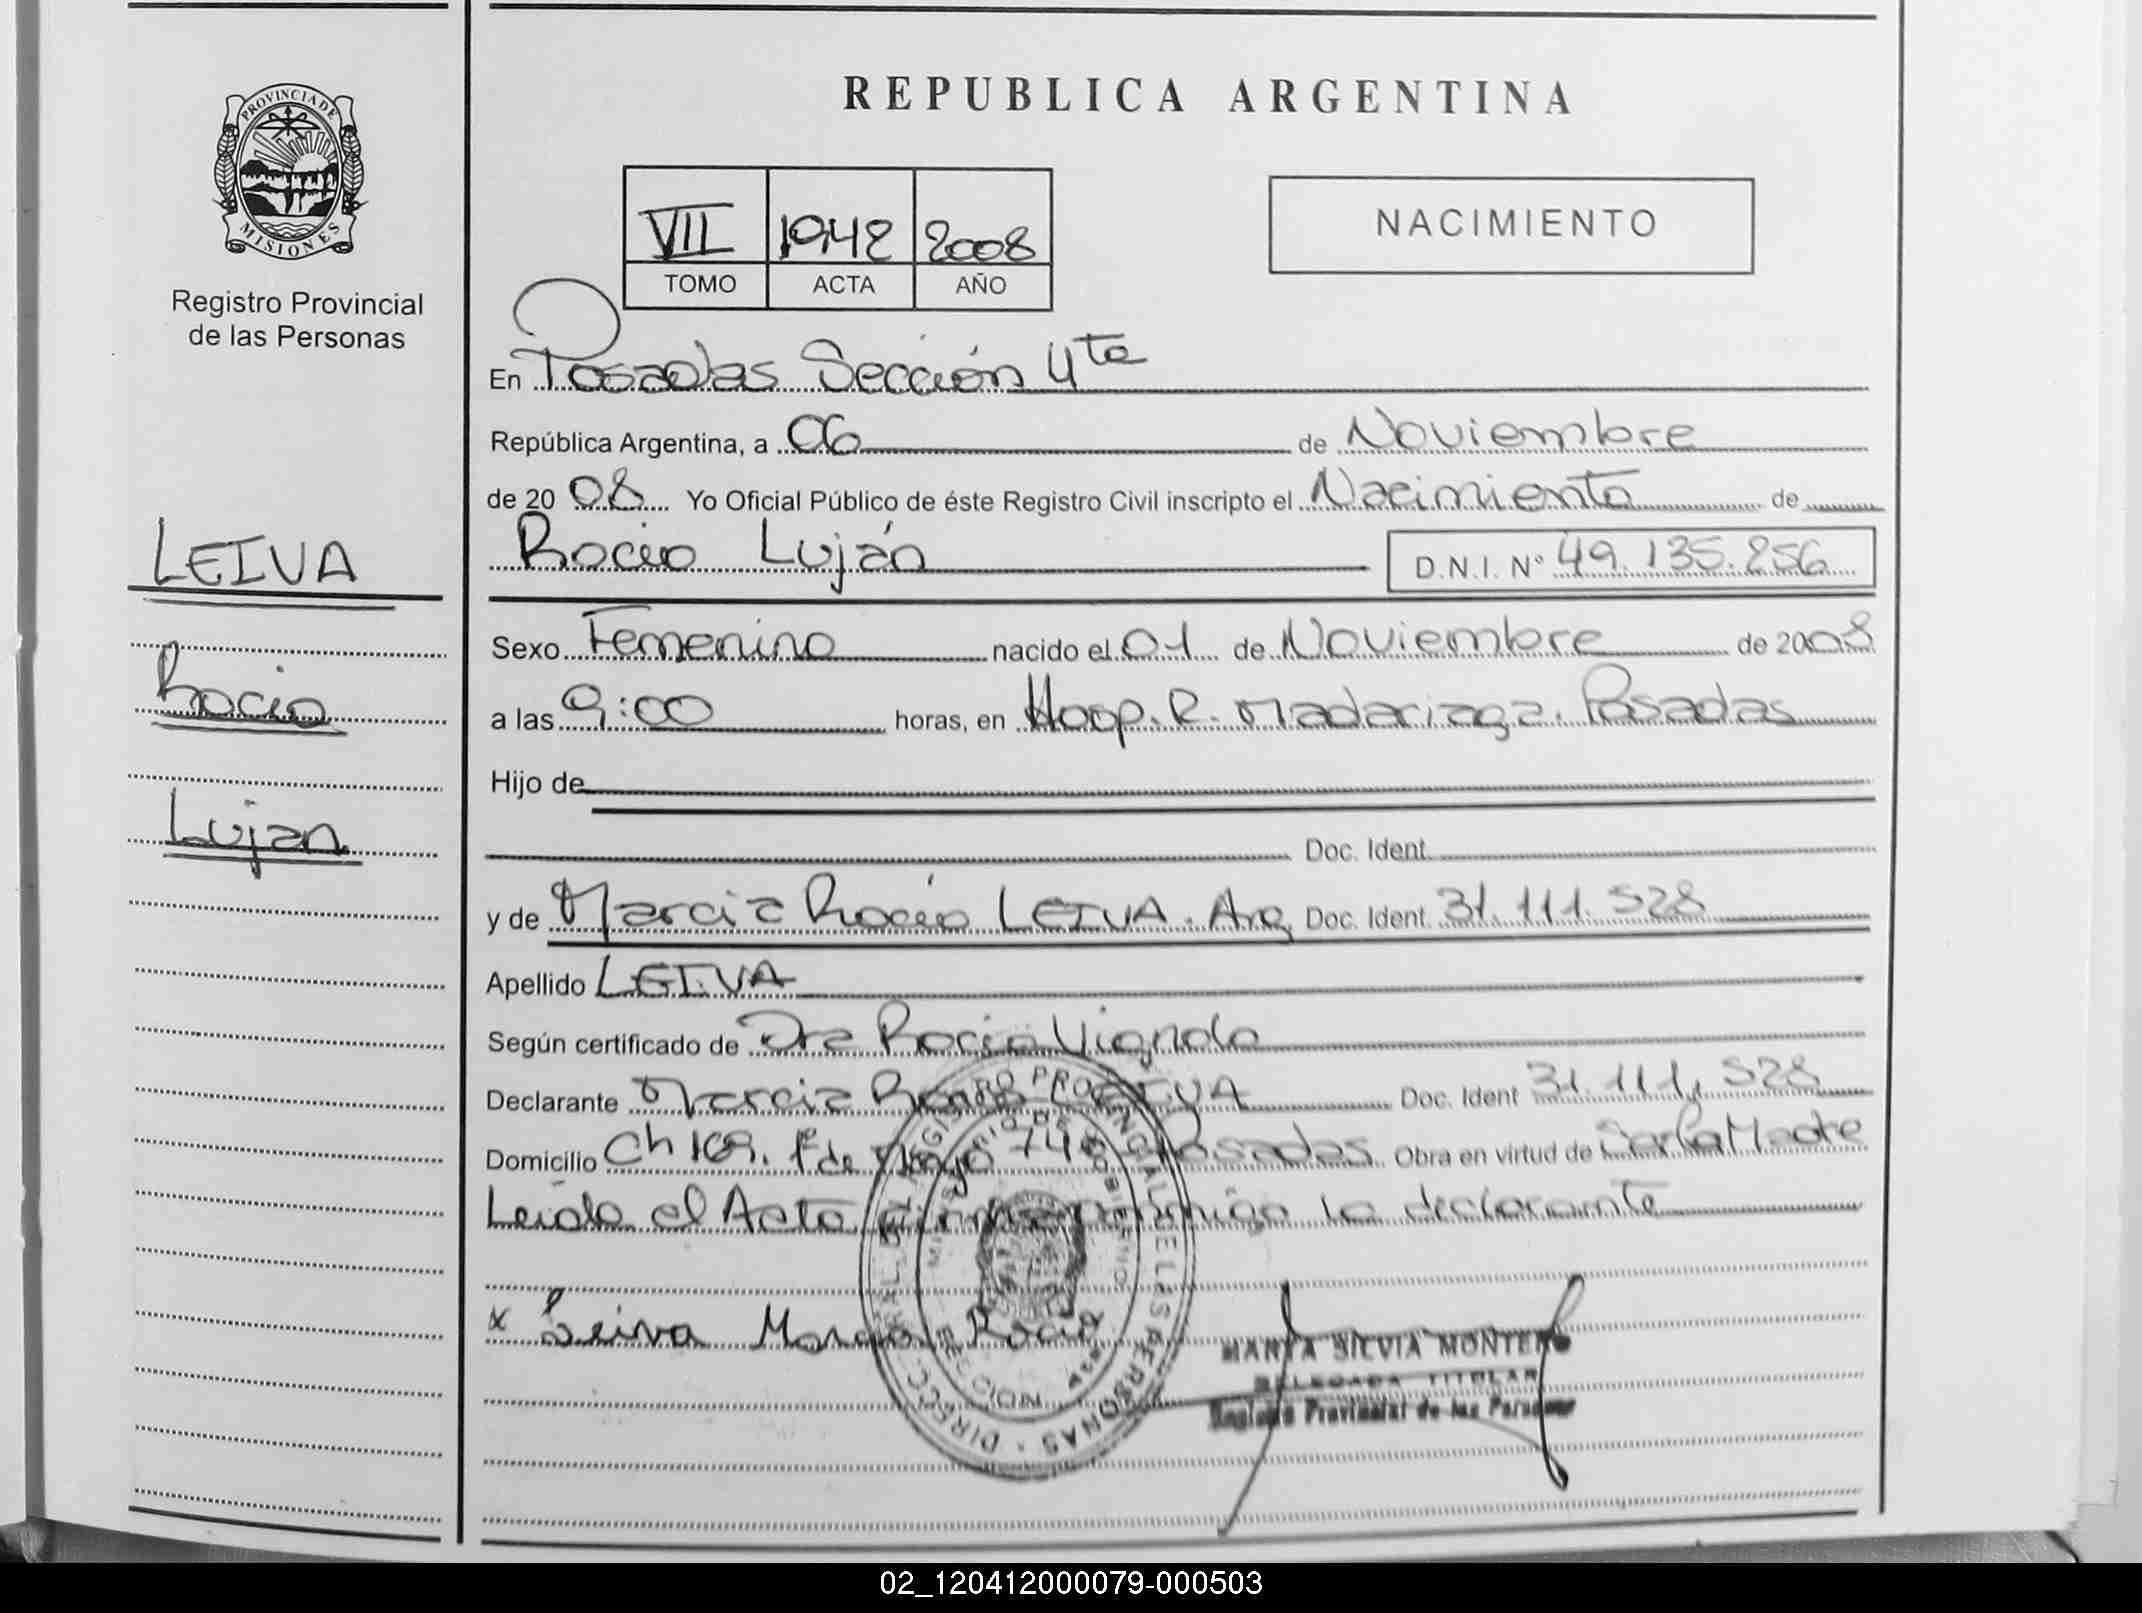 PROVINCIA DE
MISIONES
Registro Provincial
de las Personas
LEIVA
Rocio
Lujan
REPUBLICA ARGENTINA
VII 1942 2008
TOMO ACTA AÑO
NACIMIENTO
En Posadas Sección 4ta
República Argentina, a 06 de Noviembre
de 2008 Yo Oficial Público de éste Registro Civil inscripto el Nacimiento de
Rocío Luján D.N.I. Nº 49.135.256
Sexo Femenino nacido el 01 de Noviembre de 2008
a las 9:00 horas, en Hosp. R. Madariaga. Posadas
Hijo de
Doc. Ident.
y de Marcia Rocío LEIVA. Arg. Doc. Ident. 31.111.528
Apellido LEIVA
Según certificado de Dra Rocío Vignolo
Declarante Marcia Rocío LEIVA Doc. Ident 31.111.528
Domicilio Ch 169. 1º de Mayo Posadas. Obra en virtud de Ser la Madre
Leída el Acta firma conmigo la declarante
x Leiva Marcia Rocio
MARTA SILVIA MONTERO
DELEGADA TITULAR
Registro Provincial de las Personas
02_120412000079-000503